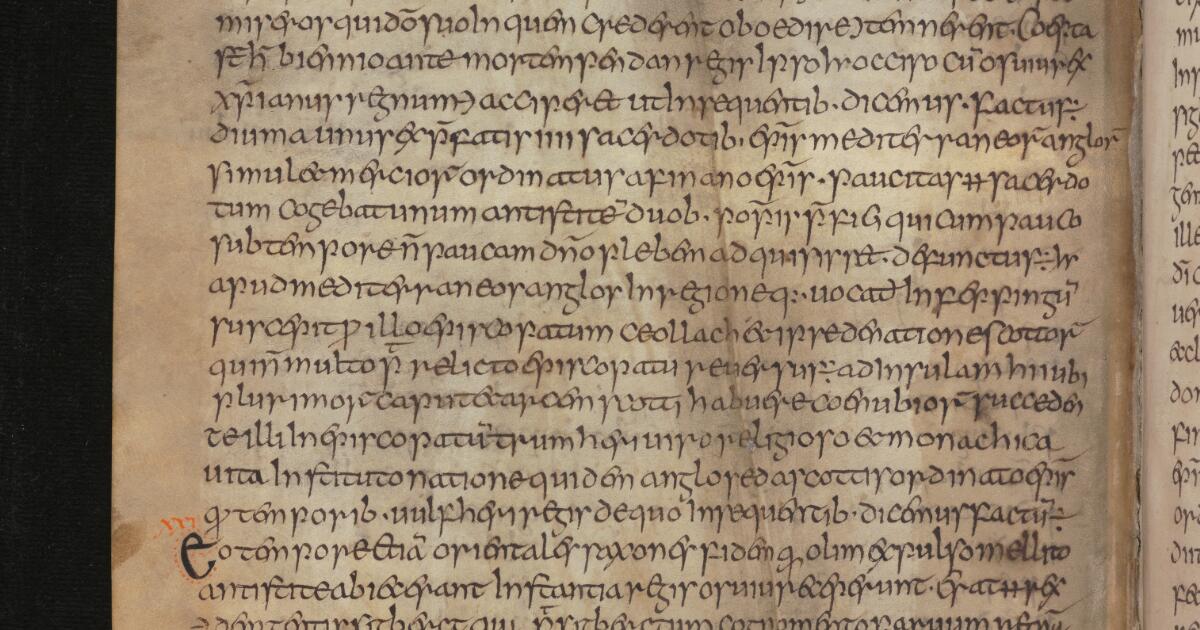 miseros qui dō suo in quem crederent oboedire ɔtemnerent. Coepta
st̄ haec biennio ante mortem pendan regis ipso h̄ occiso cū osuiu rex
xp̄ianus regnum ɔ acciperet ut in sequentib· dicemus· factus ÷
diuma unus ex p̄fatis iiii sacerdotib· ep̄is mediterraneor̄ anglor̄
simul et merciorū ordinatus a finano ep̄is · paucitas ++ sacerdo
tum cogebat unum antistitē duob· pop̄is p̄fici qui cum pauco
sub tempore n̄ paucam dn̄o plebem adquisisset· defunctus ÷ ir
apud mediterraneos anglos in regione q; uocat̄ infeppingū
suscepit ꝓ illo episcopatum ceollach et ipse de natione scottor̄
qui n̄ multo p̄ relicto episcopatu reuersus ÷ ad insulam hii ubi
plurimor̄ caput et arcem scotti habuere coenubior̄ succeden
te illi in episcopatū trumheri uiro religioso et monachica
uita instituto natione quidem anglo sed a scottis ordinato ep̄is
ꝙ temporib· uulfheri regis de quo in sequentib· dicemus factū ÷
Eo tempore etiā orientales saxones fidem q̄ olim expulso mellito
antistite abiecerant instantia regis osuiu receperunt· erat ++ rex